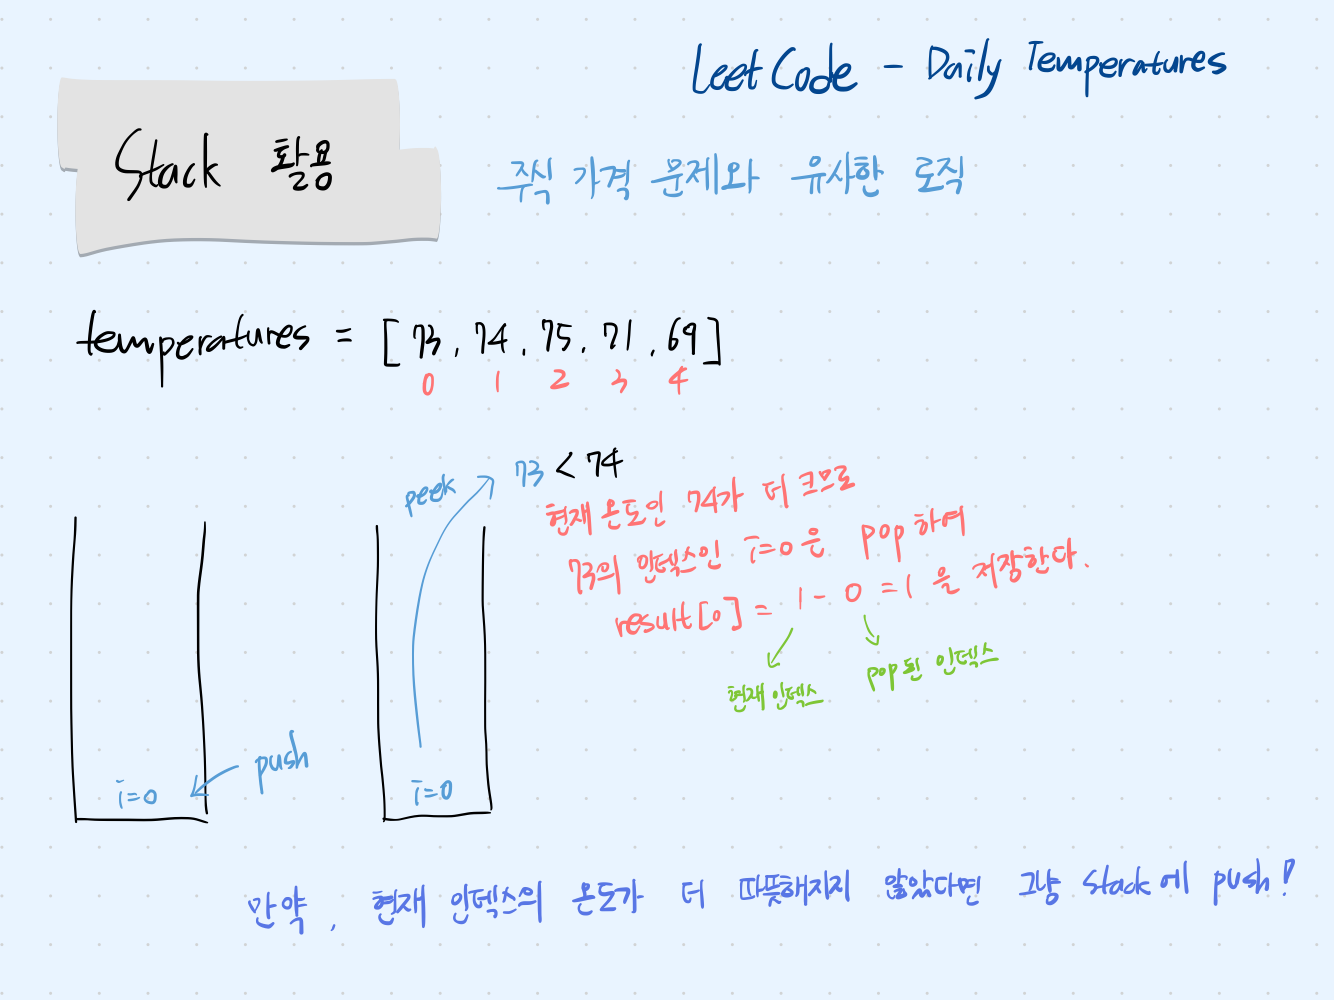 LeetCode - Daily Temperatures
Stack 활용
주식 가격 문제와 유사한 로직
temperatures = [73, 74, 75, 71, 69]
0 1 2 3 4
peek
73 < 74
현재 온도인 74가 더 크므로
73의 인덱스인 i=0은 pop하여
result[0] = 1 - 0 = 1 을 저장한다.
현재 인덱스
pop된 인덱스
push
i=0
i=0
만약, 현재 인덱스의 온도가 더 따뜻해지지 않았다면 그냥 stack에 push!